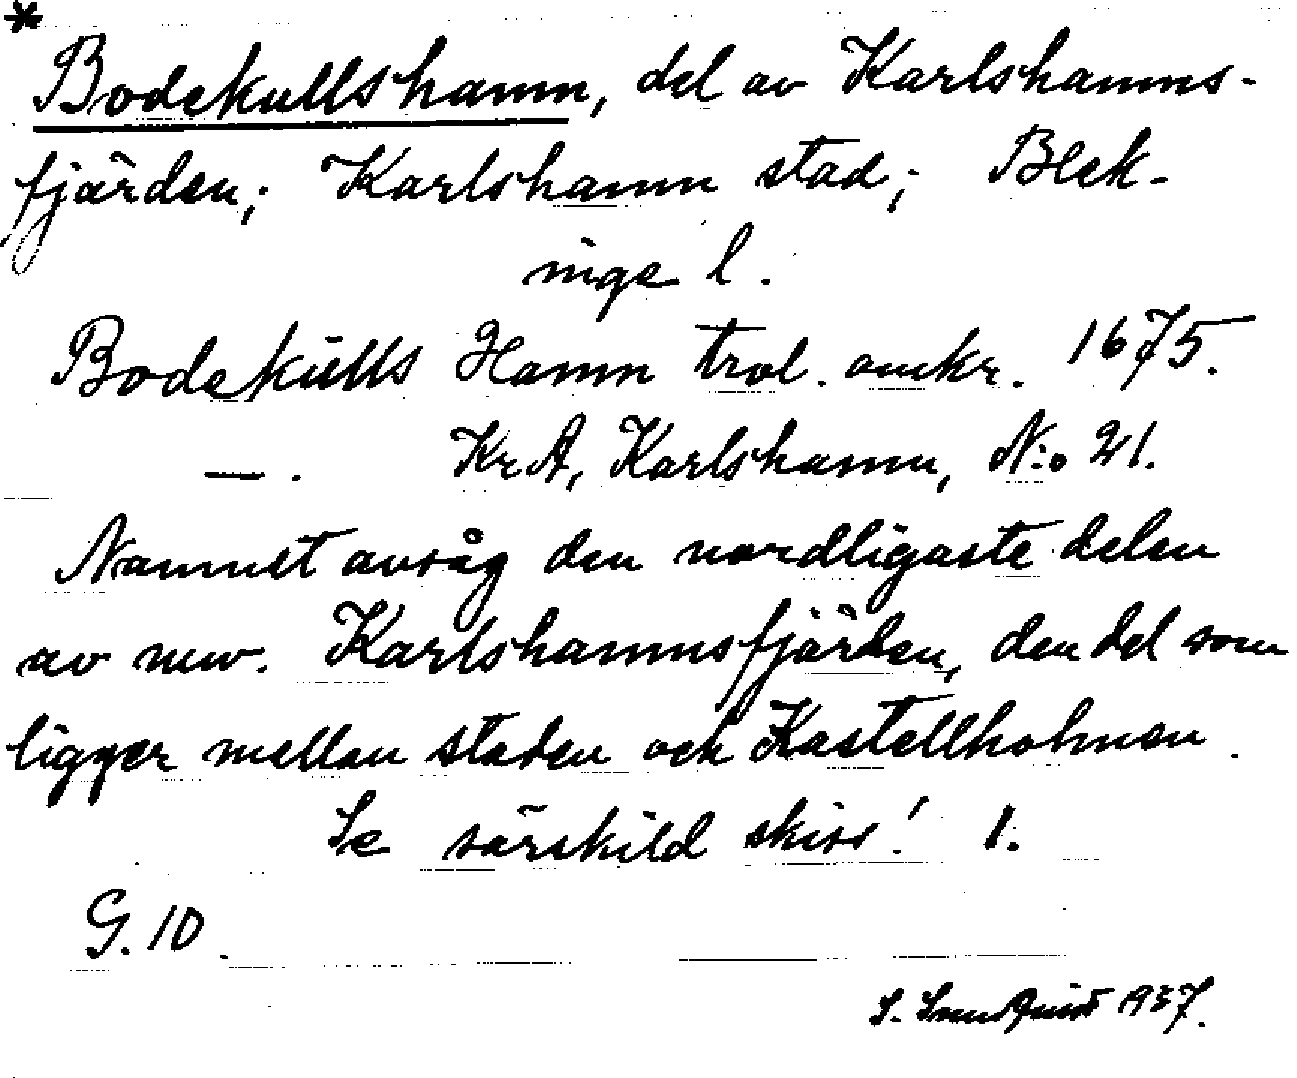 *
Bodekullshamn, del av Karlshamns-
fjärden; Karlshamn stad; Blek-
inge l.
Bodekulls Hamn trol. omkr. 1675.
—. KrA, Karlshamn, N:o 21.
Namnet avsåg den nordligaste delen
av nuv. Karlshamnsfjärden, den del som
ligger mellan staden och Kastellholmen.
Se särskild skiss! 1.
G. 10.
S. Sundquist 1937.